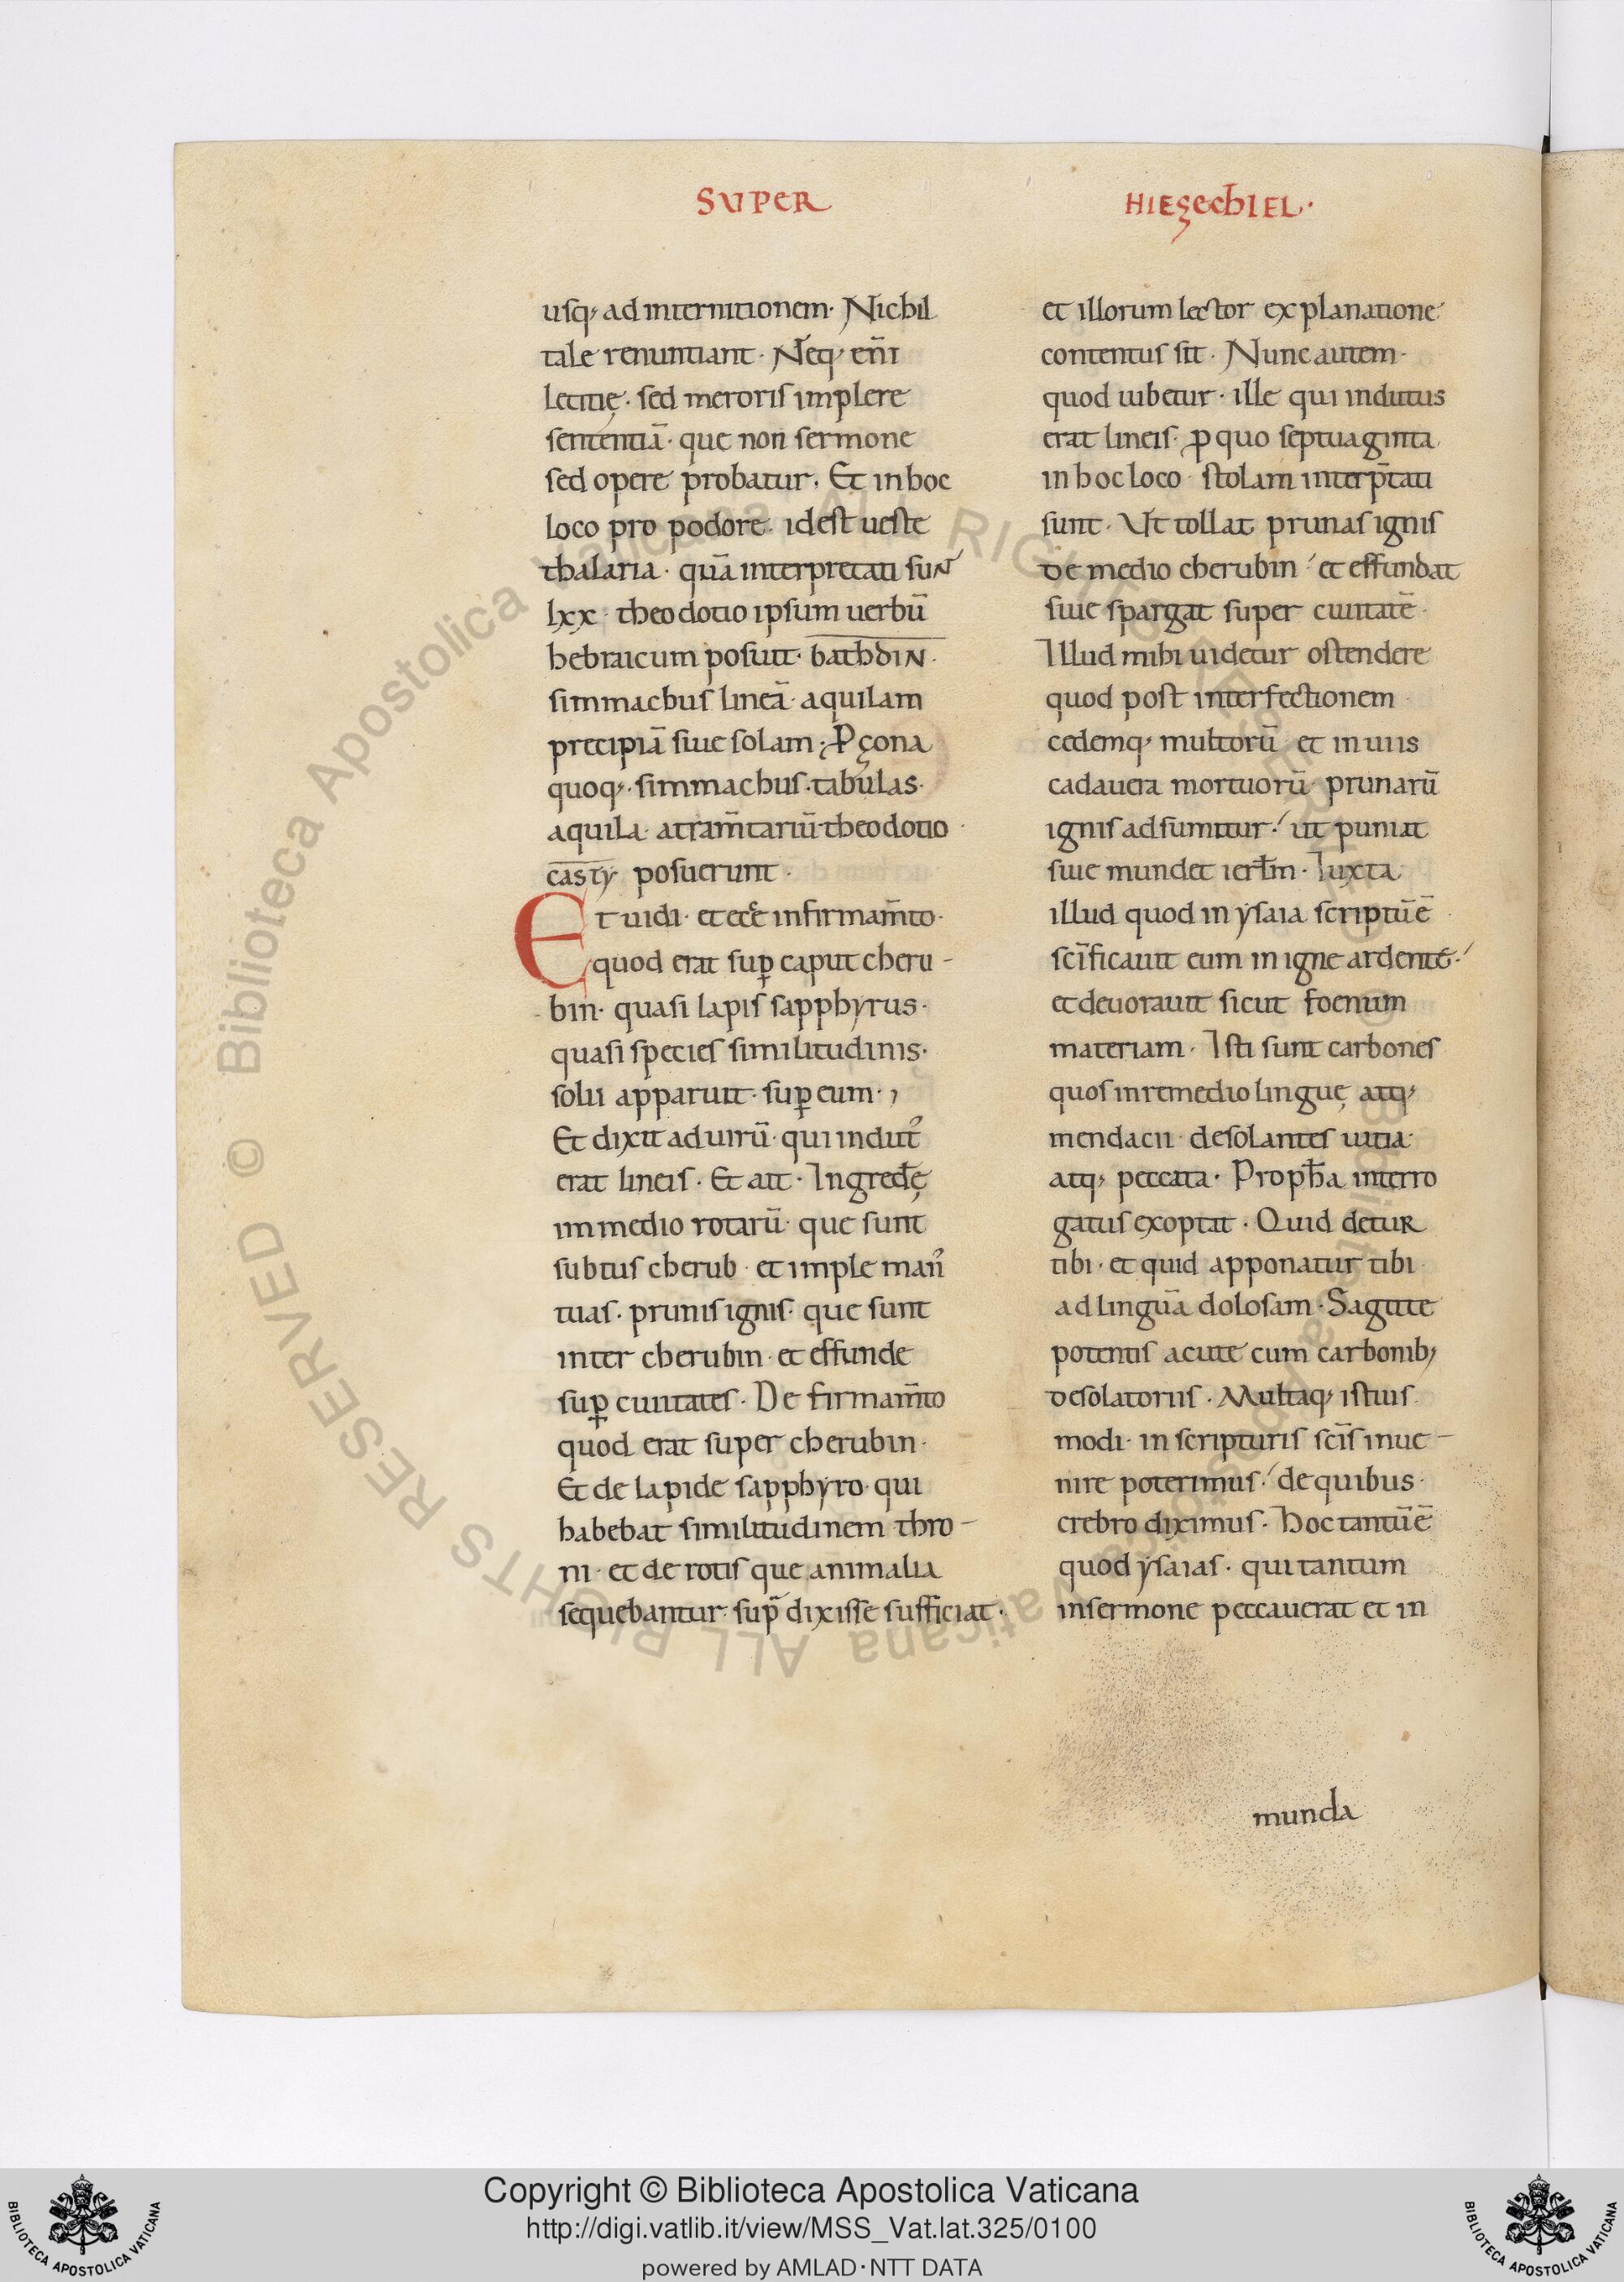 SUPER
HIEzechIEL·
usq; ad internitionem· Nichil
tale renuntiant· Neq; eni̅
letitię· sed meroris implere
sententia̅· que non sermone
sed opere probatur· Et in hoc
loco pro podore· id est ueste
thalaria· qua̅ interpretati suNT
lxx· theodotio ipsum uerbu̅
hebraicum posuit· bathdiN·
simmachus linea̅· aquilam
precipia̅ siue solam· P̱ çona
quoq;· simmachus· tabulas·
aquila· atram̅tariu̅ theodotio·
casty· posuerunt·
Et uidi· et ecce in firmam̅to·
quod erat sup̱ caput cheru-
bin· quasi lapis sapphyrus·
quasi species similitudinis·
solii apparuit· sup̱ eum·,
Et dixit ad uiru̅· qui indut᾽
erat lineis· Et ait· Ingred̅ę
im medio rotaru̅· que sunt
subtus cherub· et imple man᾽
tuas· prunis ignis· que sunt
inter cherubin· et effunde
sup̱ ciuitates· De firmam̅to
quod erat super cherubin·
Et de lapide sapphyro· qui
habebat similitudinem thro-
ni· et de rotis que animalia
sequebantur· sup̅ dixisse sufficiat·
et illorum lector explanatione
contentus sit· Nunc autem·
quod iubetur· ille qui indutus
erat lineis· ꝓ quo septuaginta
in hoc loco· stolam interp̅tati
sunt· Ut tollat prunas ignis
de medio cherubin· et effundat
siue spargat super ciuitate̅·
Illud mihi uidetur ostendere
quod post interfectionem
cedemq; multoru̅ et in uiis
cadauera mortuoru̅· prunaru̅
ignis adsumitur· ut puniat
siue mundet ierl̅m· Iuxta
illud quod in ysaia scriptu̅ e̅
sci̅ficauit eum in igne ardente·
et deuorauit sicut foenum
materiam· Isti sunt carbones
quos in remedio linguę atq;
mendacii· desolantes uitia·
atq; peccata· Proph̅a interro
gatus exoptat· Quid detuR
tibi· et quid apponatur tibi
ad lingua̅ dolosam· Sagitte
potentis acute cum carbonib;
desolatoriis· Multaq; istius
modi· in scripturis sci̅s inue-
nire poterimus· de quibus·
crebro diximus· Hoc tantu̅ e̅
quod ysaias· qui tantum
in sermone peccauerat et in
munda
© Biblioteca Apostolica Vaticana ALL RIGHTS RESERVED
© Biblioteca Apostolica Vaticana ALL RIGHTS RESERVED
Copyright © Biblioteca Apostolica Vaticana
http://digi.vatlib.it/view/MSS_Vat.lat.325/0100
powered by AMLAD·NTT DATA
BIBLIOTECA APOSTOLICA VATICANA
BIBLIOTECA APOSTOLICA VATICANA